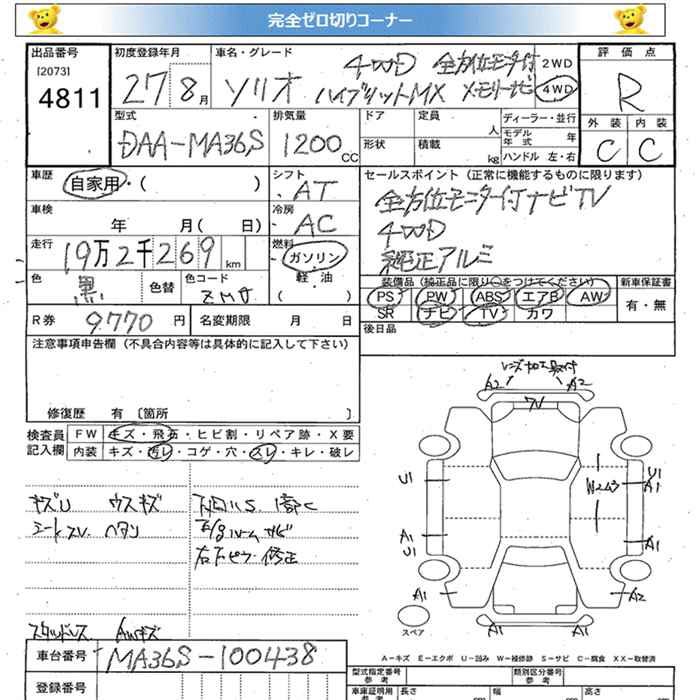 完全ゼロ切りコーナー
出品番号 初度登録年月 車名・グレード 評価点
[2073] 4WD 全方位モニタ付 2WD
4811 27 8月 ソリオ ハイブリットMX メモリーナビ 4WD R
型式 排気量 ドア 定員 ディーラー・並行 外装 内装
DAA-MA36S 1200CC 人 モデル年式 年 C C
形状 積載 kg ハンドル 左・右
車歴 シフト セールスポイント (正常に機能するものに限ります)
自家用・( ) AT 全方位モニター付ナビTV
車検 冷房 4WD
年 月( 日) AC 純正アルミ
走行 燃料
19万2千269km ガソリン
色 黒 色替 色コード ZMV 軽・油 ( )
装備品 (純正品に限り○をつけてください) 新車保証書
PS PW ABS エアB AW 有・無
SR ナビ TV カワ
R券 9770円 名変期限 月 日 後日品
注意事項申告欄 (不具合内容等は具体的に記入して下さい)
修復歴 有 [箇所 ]
検査員 FW キズ・飛石・ヒビ割・リペア跡・X要
記入欄 内装 キズ・汚レ・コゲ・穴・スレ・キレ・破レ
レンズ加工取付
A2 A2
キズU ウスキズ
シートスレ ヘタリ
サビ
右 修正
U1 W2 U1 A1
A1 U1 A1
A1 A2
スペア A1 A1
スタッドレス AWキズ
A-キズ E-エクボ U-凹み W-補修跡 S-サビ C-腐食 XX-交換済
車台番号 MA36S-100438
型式指定番号 参考 類別区分番号 参考
登録番号 車庫証明用 参考 長さ 幅 高さ